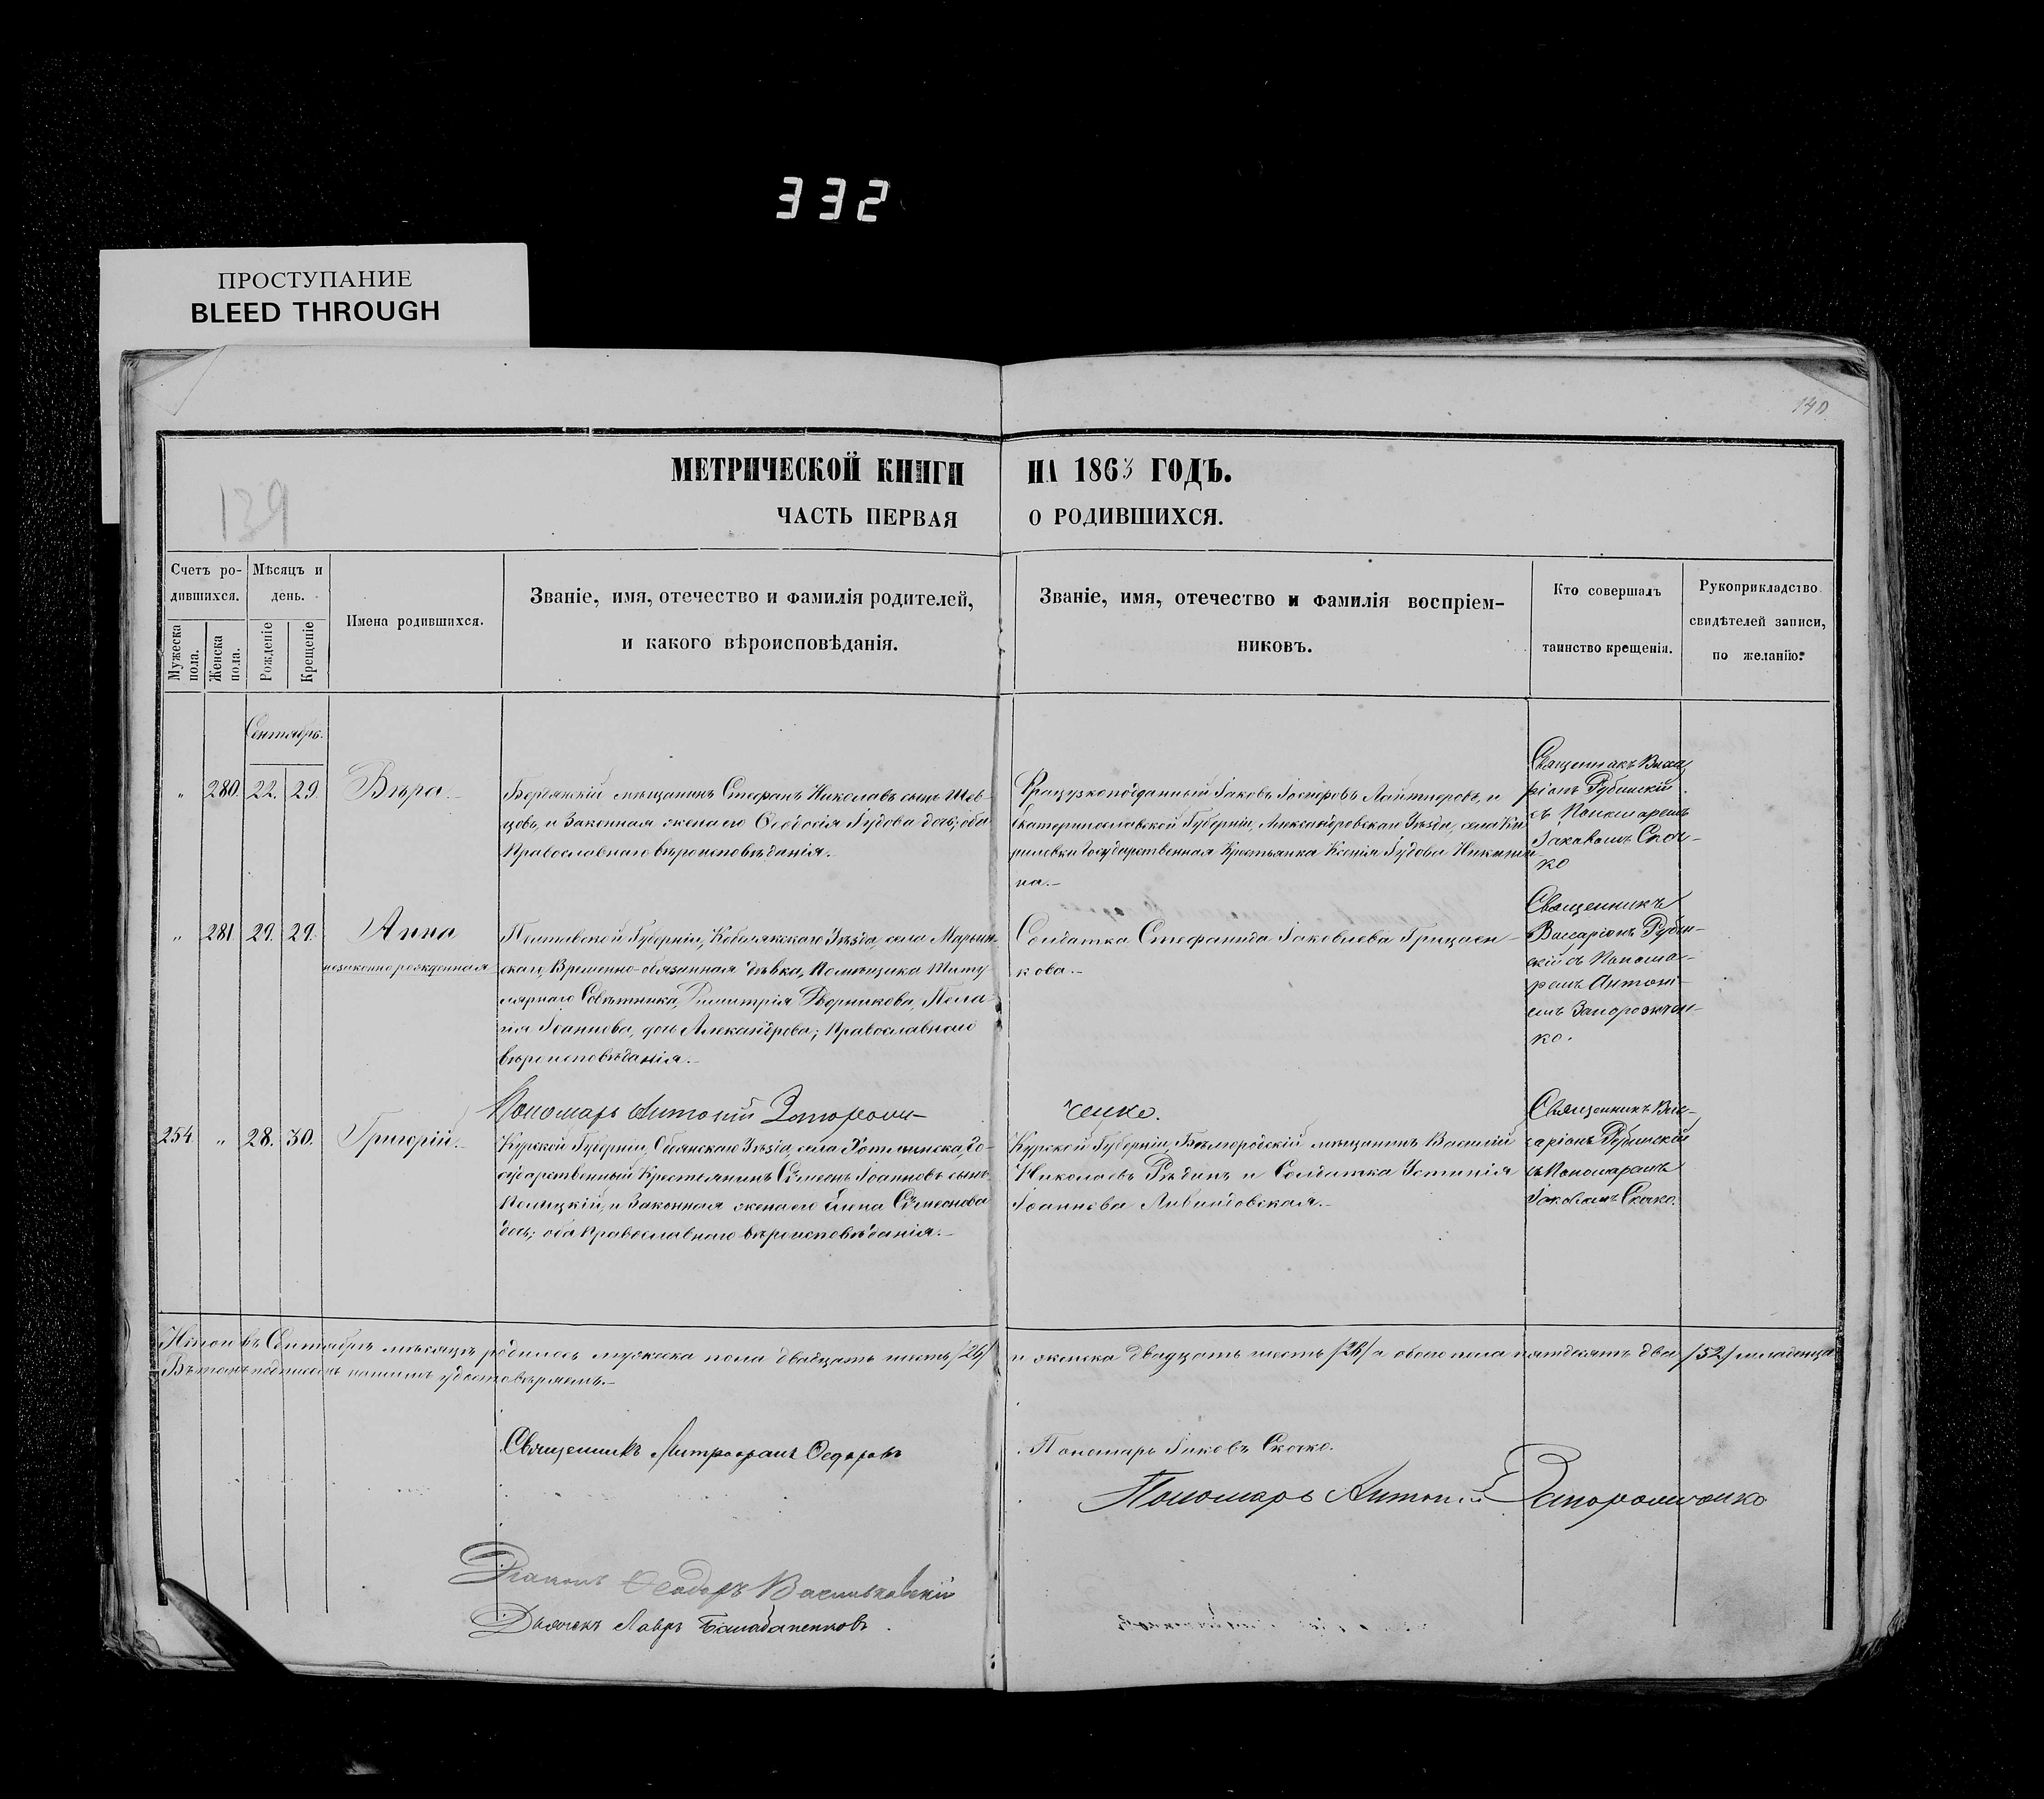 332
ПРОСТУПАНИЕ
BLEED THROUGH
140
139
МЕТРИЧЕСКОЙ КНИГИ НА 1863 ГОДЪ.
ЧАСТЬ ПЕРВАЯ О РОДИВШИХСЯ.
Счетъ ро-
дившихся.
Мужеска пола.
Женска пола.
Мѣсяцъ и
день.
Рожденіе
Крещеніе
Имена родившихся.
Званіе, имя, отечество и фамилія родителей,
и какого вѣроисповѣданія.
Званіе, имя, отечество и фамилія воспріем-
никовъ.
Кто совершалъ
таинство крещенія.
Рукоприкладство
свидѣтелей записи,
по желанію.
Сентябрь.
„ 280. 22. 29. Вѣра
Бердянскій мѣщанинъ Стефанъ Николаевъ сынъ Шев-
цовъ, и Законная жена его Ѳеодосія Іудова дочь; оба
Православнаго вѣроисповѣданія.
Французкоподданный Іаковъ Іосифовъ и
Екатеринославской Губерніи, Александровскаго Уѣзда, села Ки-
риловки Государственная Крестьянка Ксенія Іудова
на.
Священникъ Висса-
ріонъ Рубинскій
съ Пономаремъ
Іаковомъ Скоч-
ко
„ 281 29. 29. Анна
незаконнорожденная
Полтавской Губерніи, Кобелякскаго Уѣзда, села Марьин-
скаго, Временно-обязанная дѣвка, Помѣщика Титу-
лярнаго Совѣтника, Димитрія Дворникова, Пела-
гія Іоаннова, дочь Александрова; Православнаго
вѣроисповѣданія.
Солдатка Стефанида Іаковлева Грицаен-
кова.
Священникъ
Виссаріонъ Рубин-
скій съ Понома-
ремъ Антоні-
емъ Запорожчен-
ко.
Пономарь Антоній Запорож-
ченко.
254. „ 28. 30. Григорій.
Курской Губерніи, Обоянскаго Уѣзда, села Го-
сударственный Крестьянинъ Сѵмеонъ Іоанновъ сынъ
и Законная жена его Елена Сѵмеонова
дочь; оба Православнаго вѣроисповѣданія.
Курской Губерніи, Бѣлгородскій мѣщанинъ Василій
Николаевъ Рѣдинъ и Солдатка Устинія
Іоаннова
Священникъ Вис-
саріонъ Рубинскій
съ Пономаремъ
Іаковомъ Скочко.
Итого въ Сентябрѣ мѣсяцѣ родилось мужеска пола двадцать шесть /26/ и женска двадцать шесть /26/ а обоего пола пятдесятъ два /52/ младенца
Въ томъ подписомъ нашимъ удостовѣряемъ.
Священникъ Митрофанъ Ѳедоровъ
Пономарь Іаковъ Скочко.
Пономарь Антоній Запорожченко
Діаконъ Ѳеодоръ Васильковскій
Дьячекъ Лавръ Балабаненковъ.